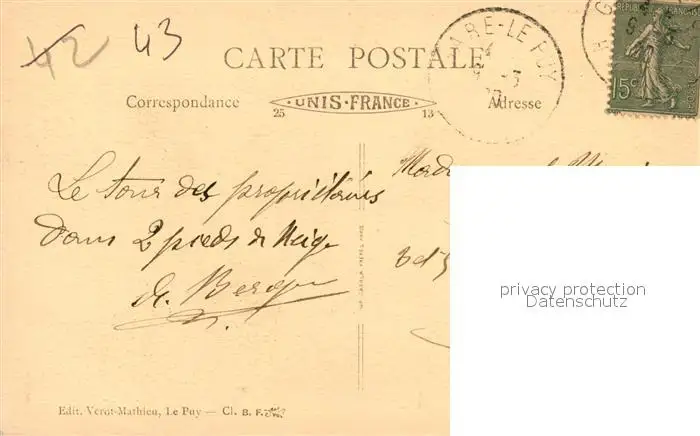 42 43
CARTE POSTALE
GARE-LE PUY
REPUBLIQUE FRANÇAISE
15c
Correspondance
UNIS-FRANCE
Adresse
25 13
Le tour des propriétaires
dans 2 pieds de Neige
privacy protection
Datenschutz
Edit. Verot-Mathieu, Le Puy — Cl. B. F.